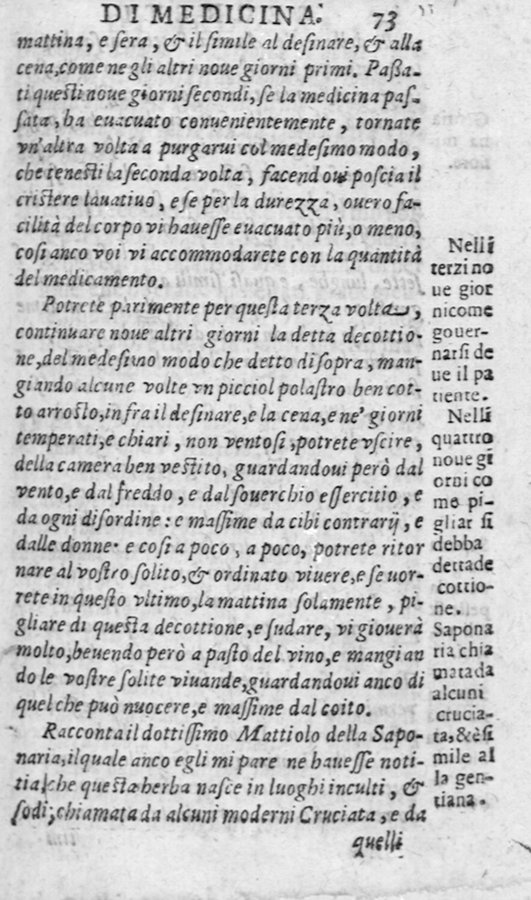 DI MEDICINA. 73
mattina, e sera, & il simile al desinare, & alla
cena, come negli altri noue giorni primi. Paßa-
ti questi noue giorni secondi, se la medicina pas-
sata, ha euacuato conuenientemente, tornate
vn'altra volta a purgarui col medesimo modo,
che tenesti la seconda volta, facendoui poscia il
cristere lauatiuo, e se per la durezza, ouero fa-
cilità del corpo vi hauesse euacuato più, o meno,
cosi anco voi vi accommodarete con la quantità
del medicamento.
Potrete parimente per questa terza volta,
continuare noue altri giorni la detta decottio-
ne, del medesimo modo che detto di sopra, man-
giando alcune volte vn picciol polastro ben cot-
to arrosto, in fra il desinare, e la cena, e ne' giorni
temperati, e chiari, non ventosi, potrete vscire,
della camera ben vestito, guardandoui però dal
vento, e dal freddo, e dal souerchio essercitio, e
da ogni disordine: e massime da cibi contrarij, e
dalle donne· e cosi a poco, a poco, potrete ritor
nare al vostro solito, & ordinato viuere, e se vor-
rete in questo vltimo, la mattina solamente, pi-
gliare di questa decottione, e sudare, vi giouerà
molto, beuendo però a pasto del vino, e mangian
do le vostre solite viuande, guardandoui anco di
quel che può nuocere, e massime dal coito.
Racconta il dottissimo Mattiolo della Sapo-
naria, il quale anco egli mi pare ne hauesse noti-
tia, che questa herba nasce in luoghi inculti, &
sodi, chiamata da alcuni moderni Cruciata, e da
quelli
Nelli
terzi no
ue gior
ni come
gouer-
narsi de
ue il pa
tiente.
Nelli
quattro
noue gi
orni co
me pi-
gliar si
debba
detta de
cottio-
ne.
Sapona
ria chia
mata da
alcuni
crucia-
ta, & è si
mile al
la gen-
tiana.